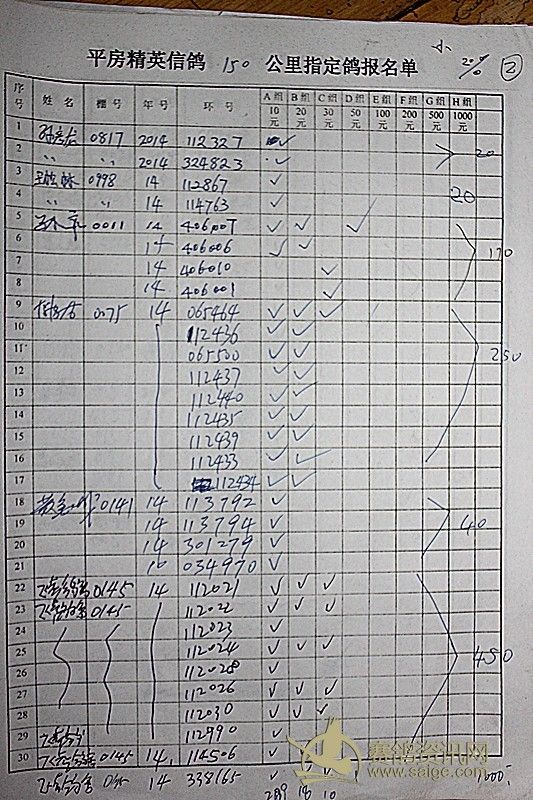 小 20% ②
平房精英信鸽 150 公里指定鸽报名单
序号 姓名 棚号 年号 环号 A组10元 B组20元 C组30元 D组50元 E组100元 F组200元 G组500元 H组1000元
1 0817 2014 112327 ✓
2 〃 〃 2014 324823 ✓ 20
3 0998 14 112867 ✓
4 〃 〃 14 114763 ✓ 20
5 0011 14 406007 ✓ ✓ ✓
6 14 406006 ✓ ✓ 170
7 14 406010 ✓
8 14 406001 ✓
9 0075 14 065464 ✓ ✓ ✓
10 112436 ✓ ✓
11 065500 ✓ ✓ 250
12 112437 ✓ ✓
13 112440 ✓ ✓
14 112435 ✓ ✓
15 112439 ✓ ✓
16 112433 ✓ ✓
17 112434 ✓ ✓
18 0141 14 113792 ✓
19 14 113794 ✓ 40
20 14 301279 ✓
21 10 034970 ✓
22 0145 14 112021 ✓ ✓ ✓
23 0145 112022 ✓ ✓ ✓
24 112023 ✓
25 112024 ✓ ✓ ✓
26 112028 ✓ 450
27 112026 ✓ ✓ ✓
28 112030 ✓ ✓ ✓
29 112990 ✓
30 0145 14 114506 ✓ ✓ ✓
14 338165 ✓ ✓ ✓
18 10
赛鸽资讯网
www.saige.com